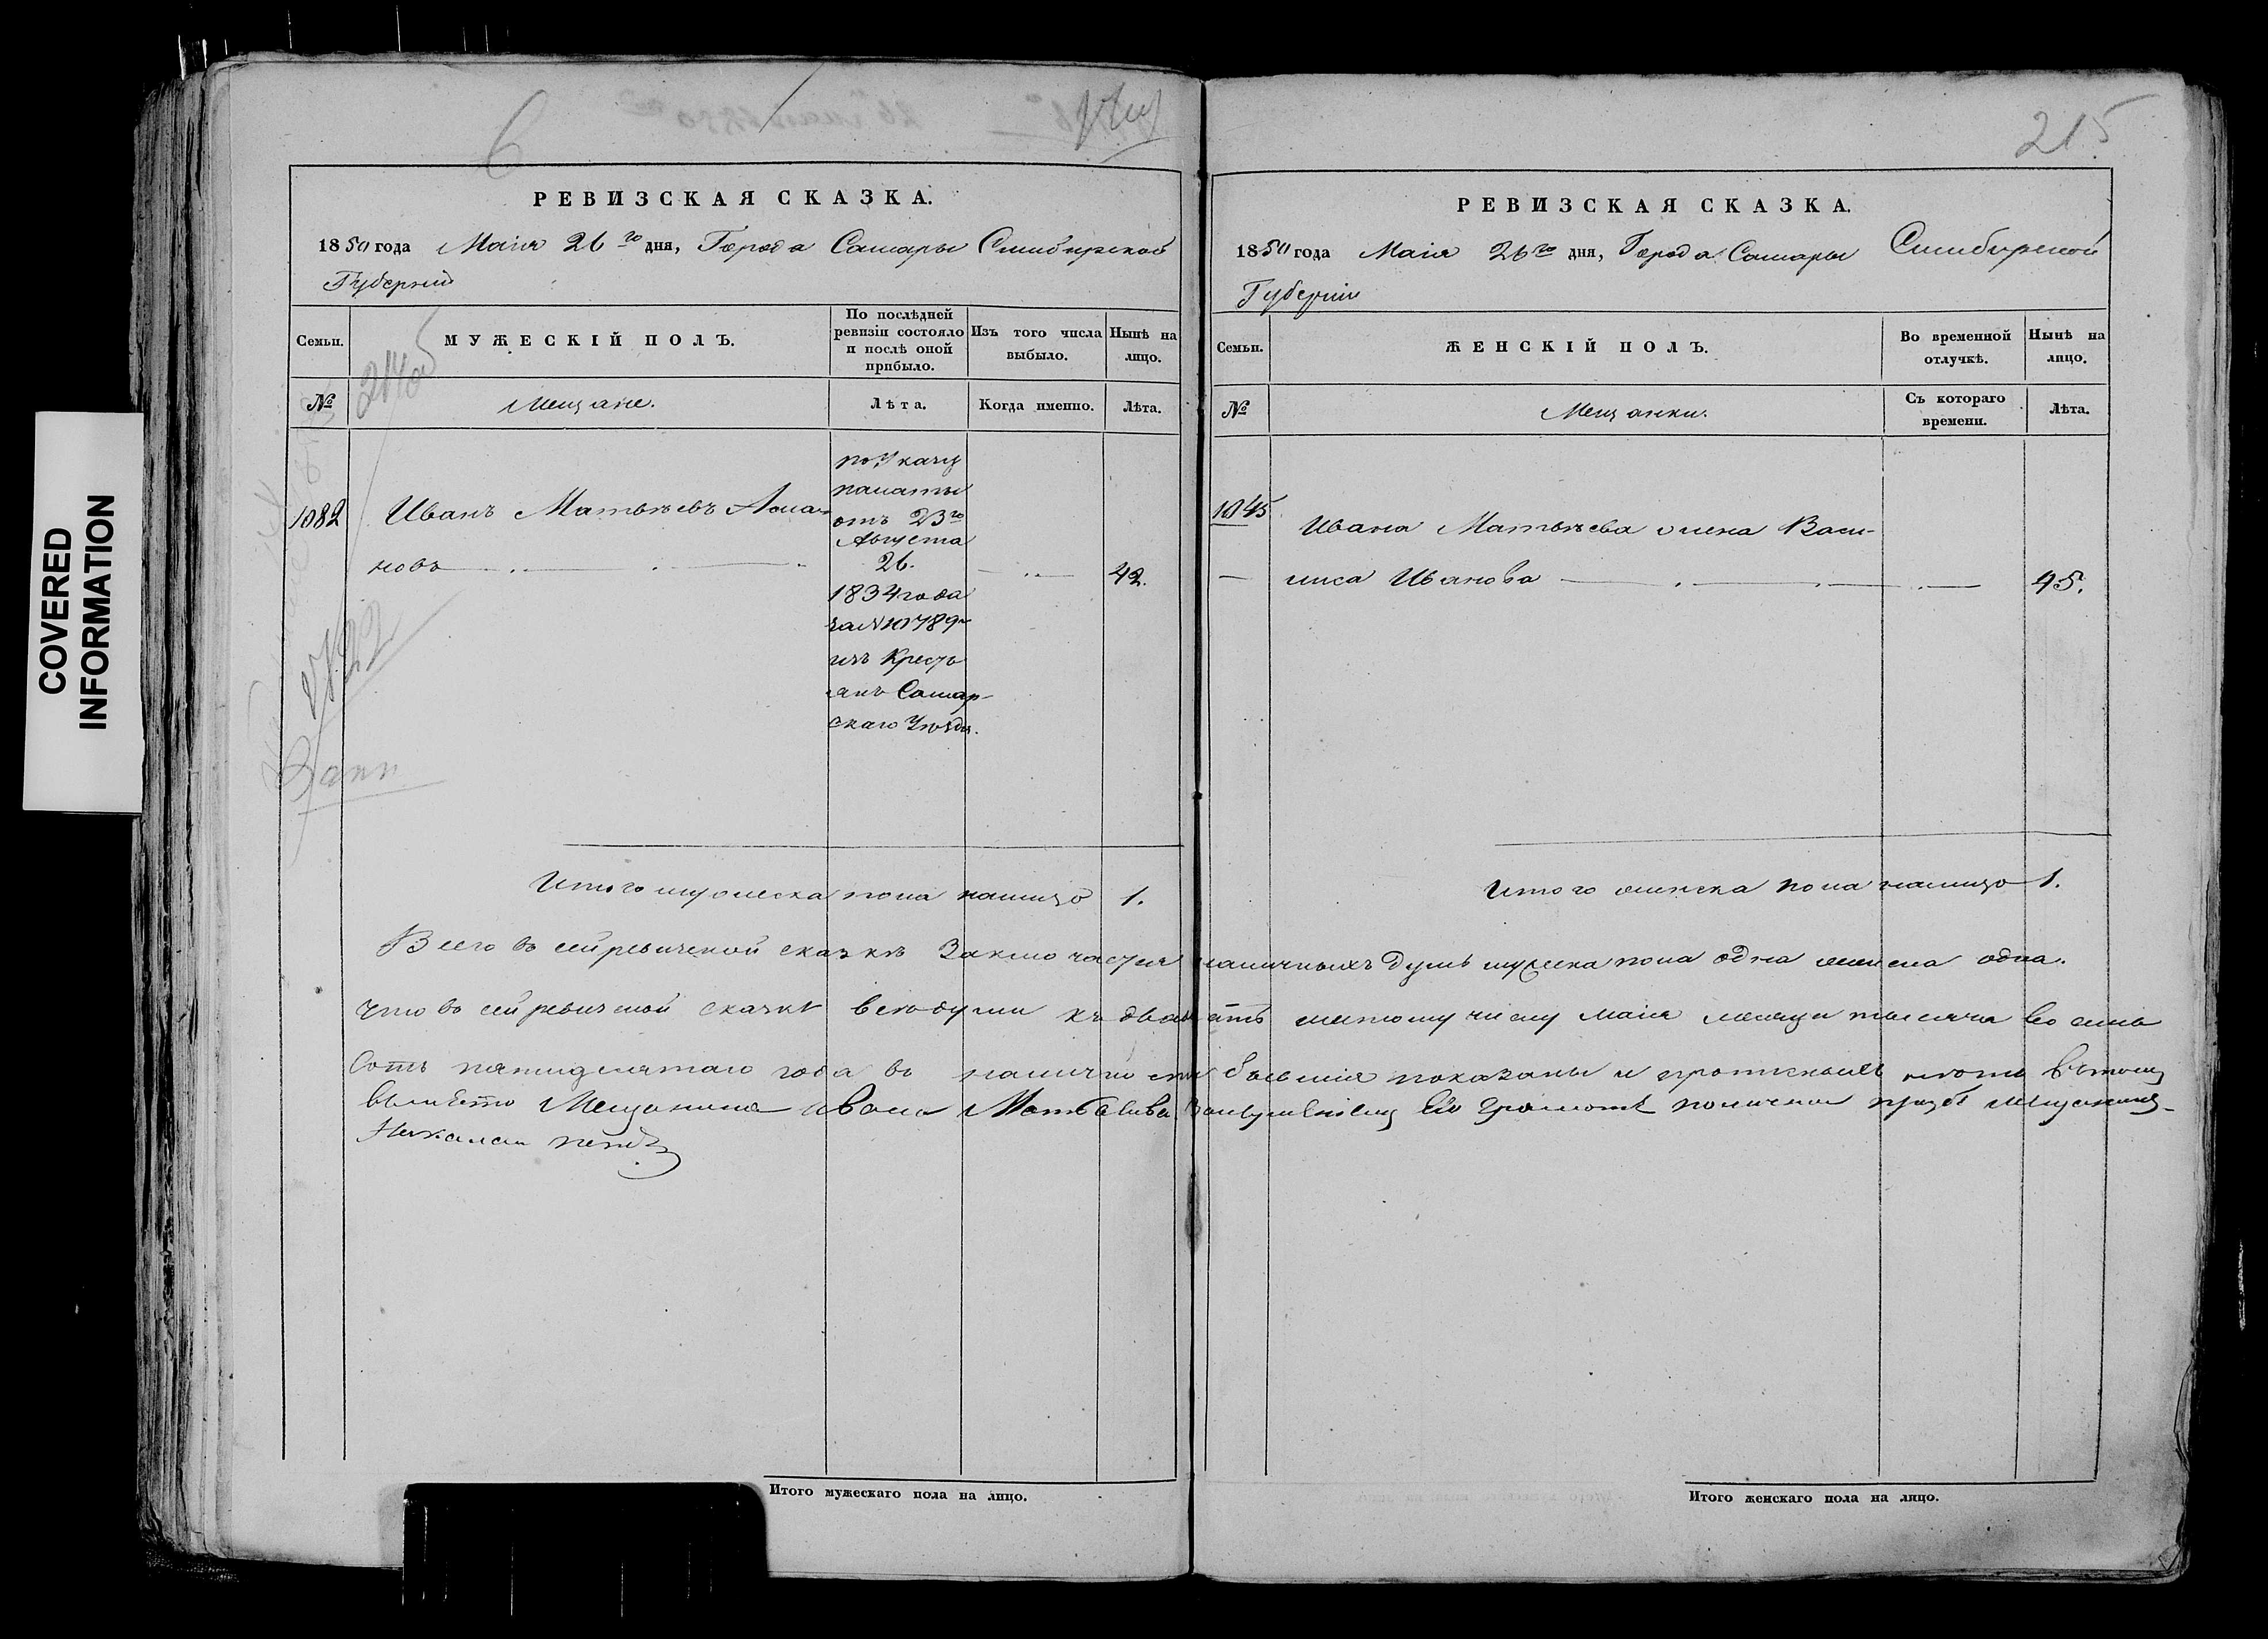 COVERED
INFORMATION
6
215
РЕВИЗСКАЯ СКАЗКА.
1850 года Маія 26го дня, Города Самары Симбирской
Губерніи
Семьи.
МУЖЕСКІЙ ПОЛЪ.
По послѣдней
ревизіи состояло
и послѣ оной
прибыло.
Изъ того числа
выбыло.
Нынѣ на
лицо.
№
Мещане.
Лѣта.
Когда именно.
Лѣта.
1082
Иванъ Матвѣевъ
новъ
по Указу
палаты
отъ 23го
Августа
26.
1834 года
за № 10789
изъ Кресть
янъ Самар-
скаго Уѣзда.
42.
Итого мужеска пола налицо 1.
РЕВИЗСКАЯ СКАЗКА.
1850 года Маія 26го дня, Города Самары Симбирской
Губерніи
Семьи.
ЖЕНСКІЙ ПОЛЪ.
Во временной
отлучкѣ.
Нынѣ на
лицо.
№
Мещанки.
Съ котораго
времени.
Лѣта.
1045
Ивана Матвѣева жена Васи-
лиса Иванова
45.
Итого женска пола налицо 1.
Всего въ сей ревизской сказкѣ Заключается наличныхъ душъ мужеска пола одна женска одна.
Что въ сей ревизской сказкѣ всѣ души къ двадцать шестому числу Маія месяца тысяча восемь
сотъ пятидесятаго года въ наличности бывшія показаны и прописныхъ нѣтъ въ томъ
вместо Мещанина Ивана Матвеева грамоте по личной прозбе мещанинъ
Итого мужескаго пола на лицо.
Итого женскаго пола на лицо.